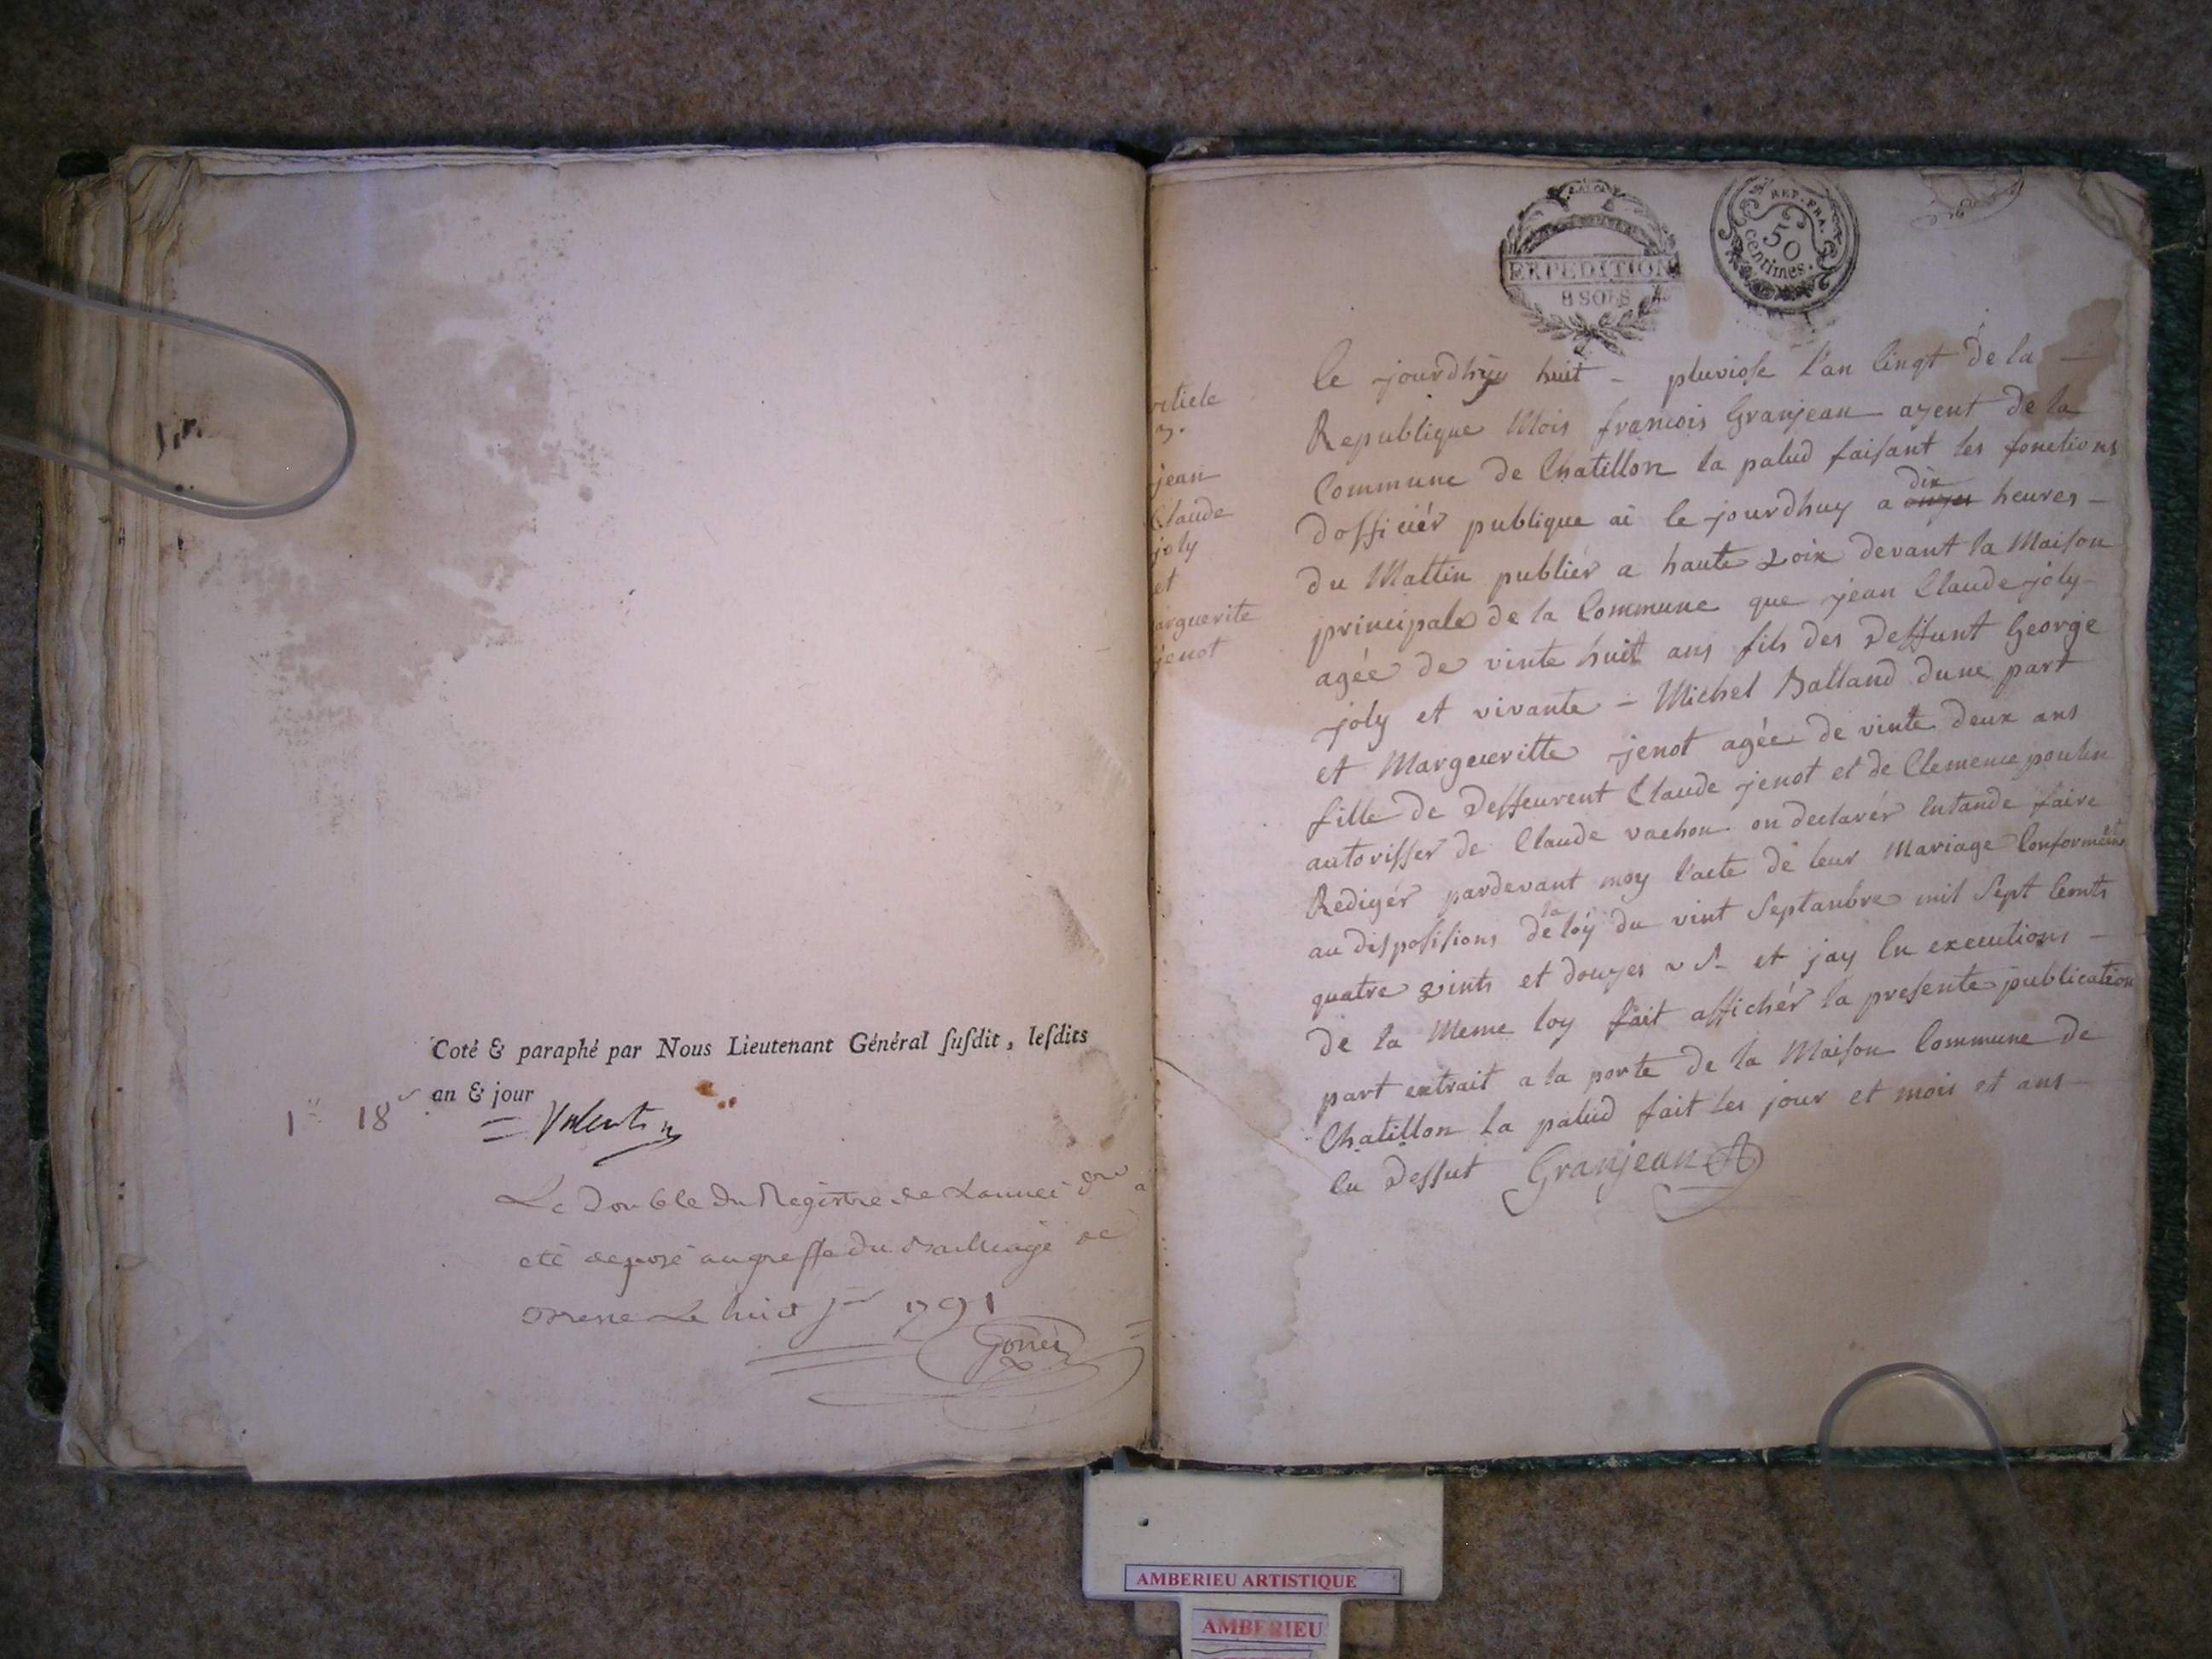 Coté & paraphé par Nous Lieutenant Général susdit, lesdits
an & jour
18
Valentin
Le Double du Registre de Lannée a
eté deposé au greffe du Bailliage de
Le huit 1791
article
3.
jean
Claude
joly
et
arguerite
jenot
EXPEDITION
8 SOLS
REP. FRA.
50
centimes.
le jourdhuy huit - pluviose l'an Cinqt de la
Republique Mois francois Granjean agent de la
Commune de Chatillon la palud faisant les fonctions
doffieiér publique ai le jourdhuy a dix onzes heures
du Mattin publiér a haute voix devant la Maison
principale de la Commune que jean Claude joly
agée de vinte huit ans fils des deffunt George
joly et vivante - Michel Balland dune part
et Margueritte jenot agée de vinte deux ans
fille de Deffeurent Claude jenot et de Clemence poulin
autorisser de Claude vachon on declarér Entande faire
Redigér pardevant moy l'acte de leur Mariage Conformement
au disposisions de la loy du vint Septanbre mil Sept Cents
quatre vints et douzes v S - et jay En executions
de la Meme loy fait affichér la presente publication
part extrait a la porte de la Maison Commune de
Chatillon la palud fait les jour et mois et ans
En Dessut Granjean
AMBERIEU ARTISTIQUE
AMBERIEU